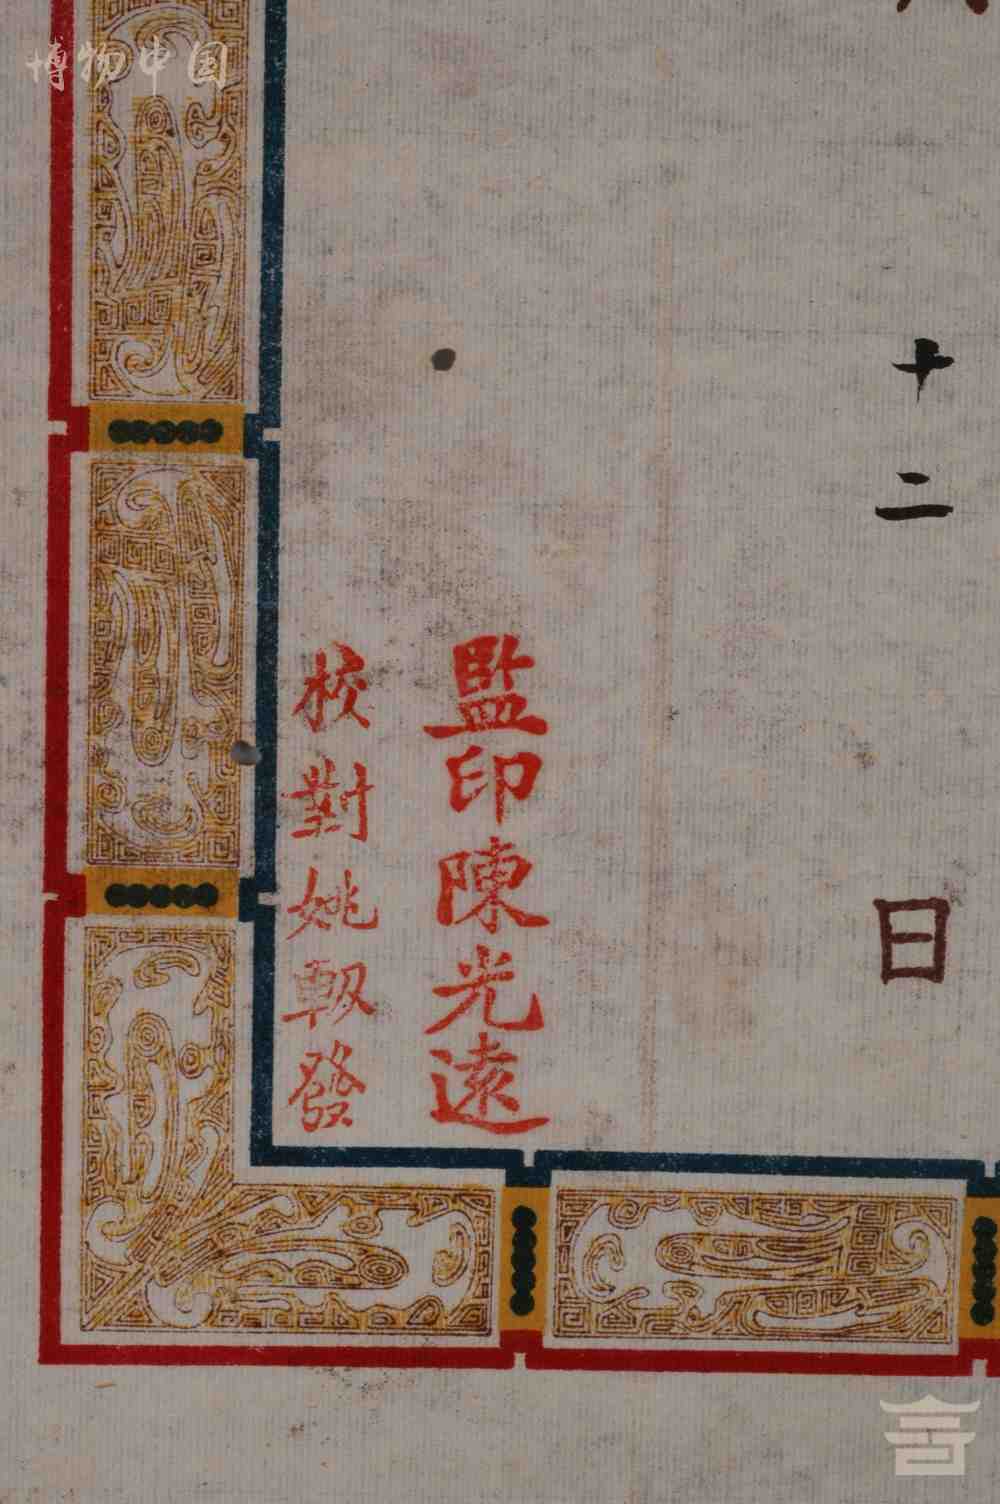 博物中国
十二日
監印陳光遠
校對姚軔發